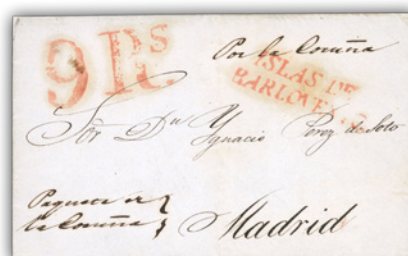 9 Rs
Por la Coruña
ISLAS DE
BARLOVENTO
Sor Dn Ygnacio Perez de Soto
Paquete de
la Coruña
Madrid